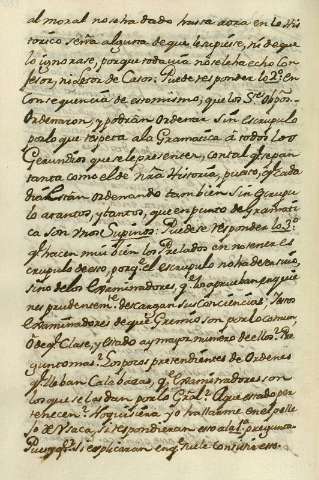 al moral nos ha dado hasta aora en lo His
torico seña alguna de que lo supiese, ni de que
lo ignorase, porque todavia no se le ha echo Con
fesor, ni Asesor de Casos. Puede responder lo 2º. En
Consequencia de esto mismo, que los Sres. Obispos
Ordenaron, y podràn Ordenar sin escrupulo
por lo que respeta a la Gramatica à todos los
Gerundios que se le presenten, con tal q. sepan
tanta como el de nra Historia, puesto q. cada
dia estàn ordenando tambien sin escrupu
lo a tantos, y tantos, que en punto de Gramati
ca son unos Supinos. Puedese responder lo 3º.
q. hacen mui bien los Prelados en no tener es
crupulo de eso, porq. el escrupulo no ha de ser suio,
sino de los Examinadores, q. los aprueban en quie
nes prudensemte. descargan sus conciencias. Estos
Examinadores de que Gremio son por lo comun,
ò de q. Clase, y estado a y mayor numero de ellos? Pre
guntomas. Los pocos pretendientes de Ordenes
q. lleban Calabazas, q. Examinadores son
los que se las dan por lo Gral? A que estado per
tenecen? Aqui seria yo hallarme en el pelle
jo de Ysaca, si respondieran eso a la 1ª. pregunta
Pues q. si explicaran en q. suele consistir eso.